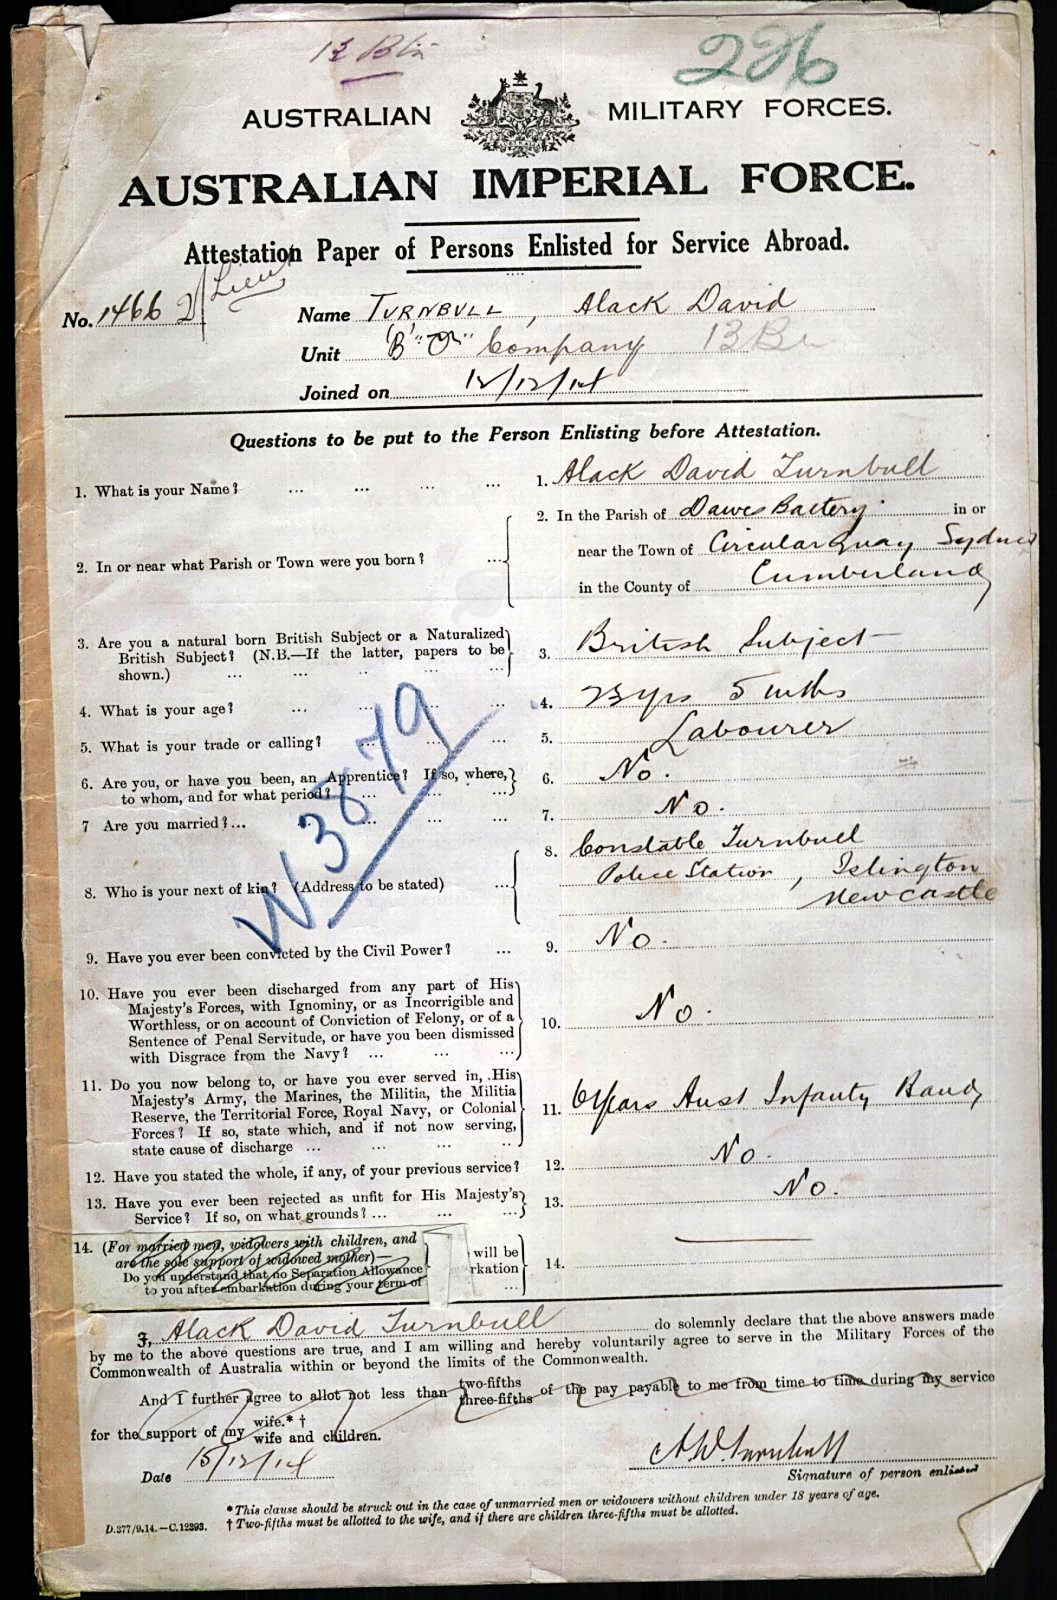 13 Btn
226
AUSTRALIAN MILITARY FORCES.
AUSTRALIAN IMPERIAL FORCE.
Attestation Paper of Persons Enlisted for Service Abroad.
No. 1466 2/Lieut
Name TURNBULL, Alack David
Unit "B" Company 13 Bn
Joined on 12/12/14
Questions to be put to the Person Enlisting before Attestation.
1. What is your Name? ... ... ... ... 1. Alack David Turnbull
2. In or near what Parish or Town were you born? ...
2. In the Parish of Dawes Battery in or
near the Town of Circular Quay Sydney
in the County of Cumberland
3. Are you a natural born British Subject or a Naturalized
British Subject? (N.B.—If the latter, papers to be
shown.) ... ... ... ...
3. British Subject
4. What is your age? ... ... ... ... 4. 23 yrs 5 mths
5. What is your trade or calling? ... ... ... 5. Labourer
6. Are you, or have you been, an Apprentice? If so, where,
to whom, and for what period? ... ... ...
6. No.
7 Are you married?... ... ... ... 7. No.
8. Who is your next of kin? (Address to be stated) ...
8. Constable Turnbull
Police Station, Islington
Newcastle
W3879
9. Have you ever been convicted by the Civil Power? ... 9. No.
10. Have you ever been discharged from any part of His
Majesty's Forces, with Ignominy, or as Incorrigible and
Worthless, or on account of Conviction of Felony, or of a
Sentence of Penal Servitude, or have you been dismissed
with Disgrace from the Navy? ... ... ...
10. No.
11. Do you now belong to, or have you ever served in, His
Majesty's Army, the Marines, the Militia, the Militia
Reserve, the Territorial Force, Royal Navy, or Colonial
Forces? If so, state which, and if not now serving,
state cause of discharge ... ... ..
11. 6 Years Aust Infantry Band
12. Have you stated the whole, if any, of your previous service? 12. No.
13. Have you ever been rejected as unfit for His Majesty's
Service? If so, on what grounds? ... ... ...
13. No.
14. (For married men, widowers with children, and
are the sole support of widowed mother)—
Do you understand that no Separation Allowance will be
to you after embarkation during your term of rkation ...
14.
I, Alack David Turnbull do solemnly declare that the above answers made
by me to the above questions are true, and I am willing and hereby voluntarily agree to serve in the Military Forces of the
Commonwealth of Australia within or beyond the limits of the Commonwealth.
And I further agree to allot not less than two-fifths three-fifths of the pay payable to me from time to time during my service
for the support of my wife.* † wife and children.
Date 15/12/14
A.D. Turnbull
Signature of person enlisted
* This clause should be struck out in the case of unmarried men or widowers without children under 18 years of age.
D.377/9.14.—C.12393. † Two-fifths must be allotted to the wife, and if there are children three-fifths must be allotted.